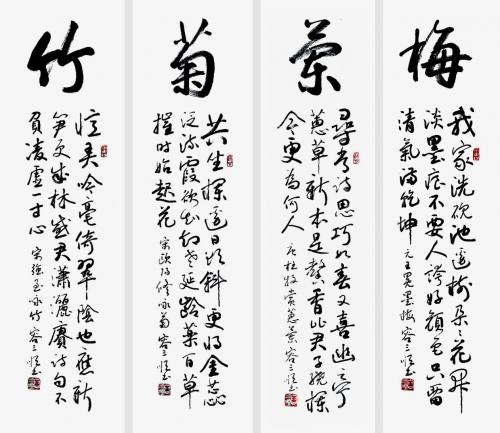 梅
我家洗硯池邊樹朵朵花開
淡墨痕不要人誇好顏色只留
清氣滿乾坤 元王冕墨梅 容三书
蘭
尋常詩思巧如春又喜幽亭
蕙草新本是馨香比君子繞欄
今更為何人 唐杜牧賞蕙蘭 容三书
菊
共坐欄邊日欲斜更將金蕊
泛流霞欲知却老延齡藥百草
摧時始起花 宋歐陽修咏菊 容三书
竹
憶君吟毫倚翠陰也應新
笋更成林感君瀟灑賡詩句不
負凌虛一寸心 宋強至咏竹 容三书